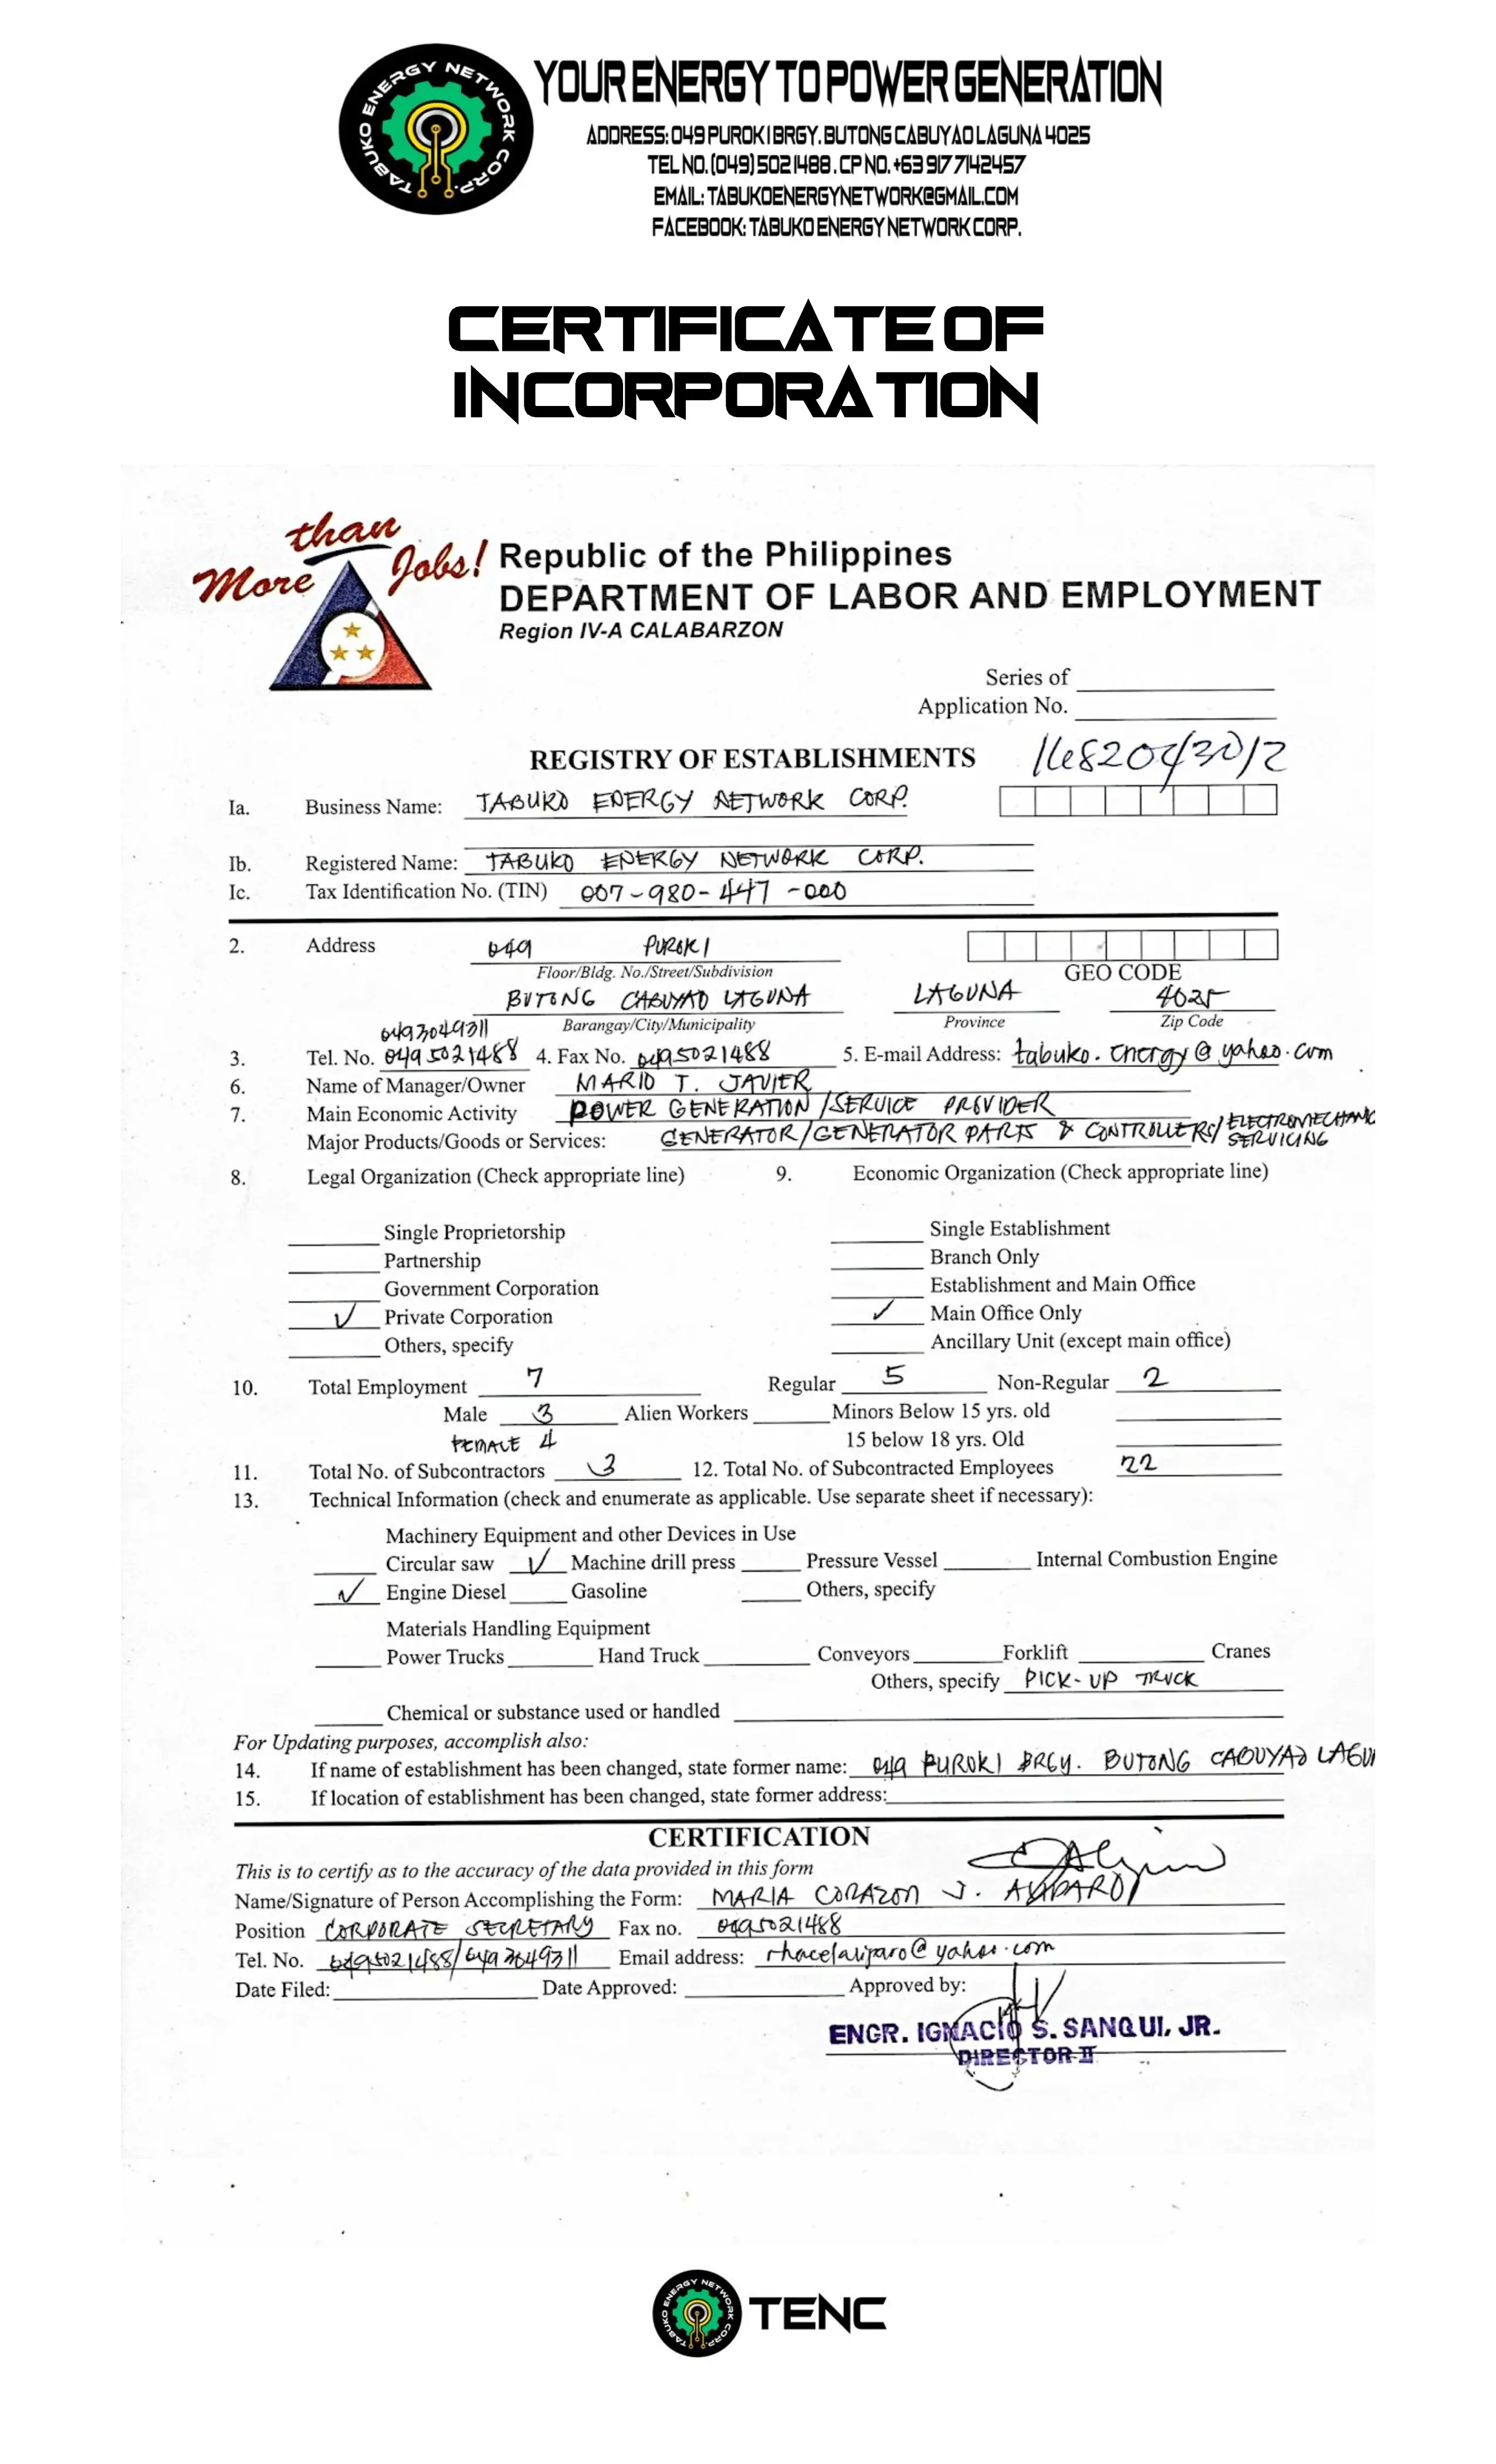 TABUKO ENERGY NETWORK CORP.
YOUR ENERGY TO POWER GENERATION
ADDRESS: 049 PUROK I BRGY. BUTONG CABUYAO LAGUNA 4025
TEL NO. (049) 502 1488 . CP NO. +63 917 7142457
EMAIL: TABUKOENERGYNETWORK@GMAIL.COM
FACEBOOK: TABUKO ENERGY NETWORK CORP.
CERTIFICATE OF
INCORPORATION
More than Jobs!
Republic of the Philippines
DEPARTMENT OF LABOR AND EMPLOYMENT
Region IV-A CALABARZON
Series of
Application No.
REGISTRY OF ESTABLISHMENTS
Ia. Business Name: TABUKO ENERGY NETWORK CORP.
Ib. Registered Name: TABUKO ENERGY NETWORK CORP.
Ic. Tax Identification No. (TIN) 007-980-447-000
2. Address 049 PUROK 1
Floor/Bldg. No./Street/Subdivision GEO CODE
BUTONG CABUYAO LAGUNA LAGUNA 4025
Barangay/City/Municipality Province Zip Code
0493049311
3. Tel. No. 0495021488 4. Fax No. 0495021488 5. E-mail Address: tabuko.energy@yahoo.com
6. Name of Manager/Owner MARIO T. JAVIER
7. Main Economic Activity POWER GENERATION/SERVICE PROVIDER
Major Products/Goods or Services: GENERATOR/GENERATOR PARTS & CONTROLLERS/ELECTROMECHANIC
SERVICING
8. Legal Organization (Check appropriate line) 9. Economic Organization (Check appropriate line)
Single Proprietorship Single Establishment
Partnership Branch Only
Government Corporation Establishment and Main Office
✓ Private Corporation ✓ Main Office Only
Others, specify Ancillary Unit (except main office)
10. Total Employment 7 Regular 5 Non-Regular 2
Male 3 Alien Workers Minors Below 15 yrs. old
FEMALE 4 15 below 18 yrs. Old
11. Total No. of Subcontractors 3 12. Total No. of Subcontracted Employees 22
13. Technical Information (check and enumerate as applicable. Use separate sheet if necessary):
Machinery Equipment and other Devices in Use
Circular saw ✓ Machine drill press Pressure Vessel Internal Combustion Engine
✓ Engine Diesel Gasoline Others, specify
Materials Handling Equipment
Power Trucks Hand Truck Conveyors Forklift Cranes
Others, specify PICK-UP TRUCK
Chemical or substance used or handled
For Updating purposes, accomplish also:
14. If name of establishment has been changed, state former name: 049 PUROK 1 BRGY. BUTONG CABUYAO LAGU
15. If location of establishment has been changed, state former address:
CERTIFICATION
This is to certify as to the accuracy of the data provided in this form
Name/Signature of Person Accomplishing the Form: MARIA CORAZON J.
Position CORPORATE SECRETARY Fax no. 0495021488
Tel. No. 0495021488/0493049311 Email address:
Date Filed: Date Approved: Approved by:
ENGR. IGNACIO S. SANQUI, JR.
DIRECTOR II
TABUKO ENERGY NETWORK CORP.
TENC